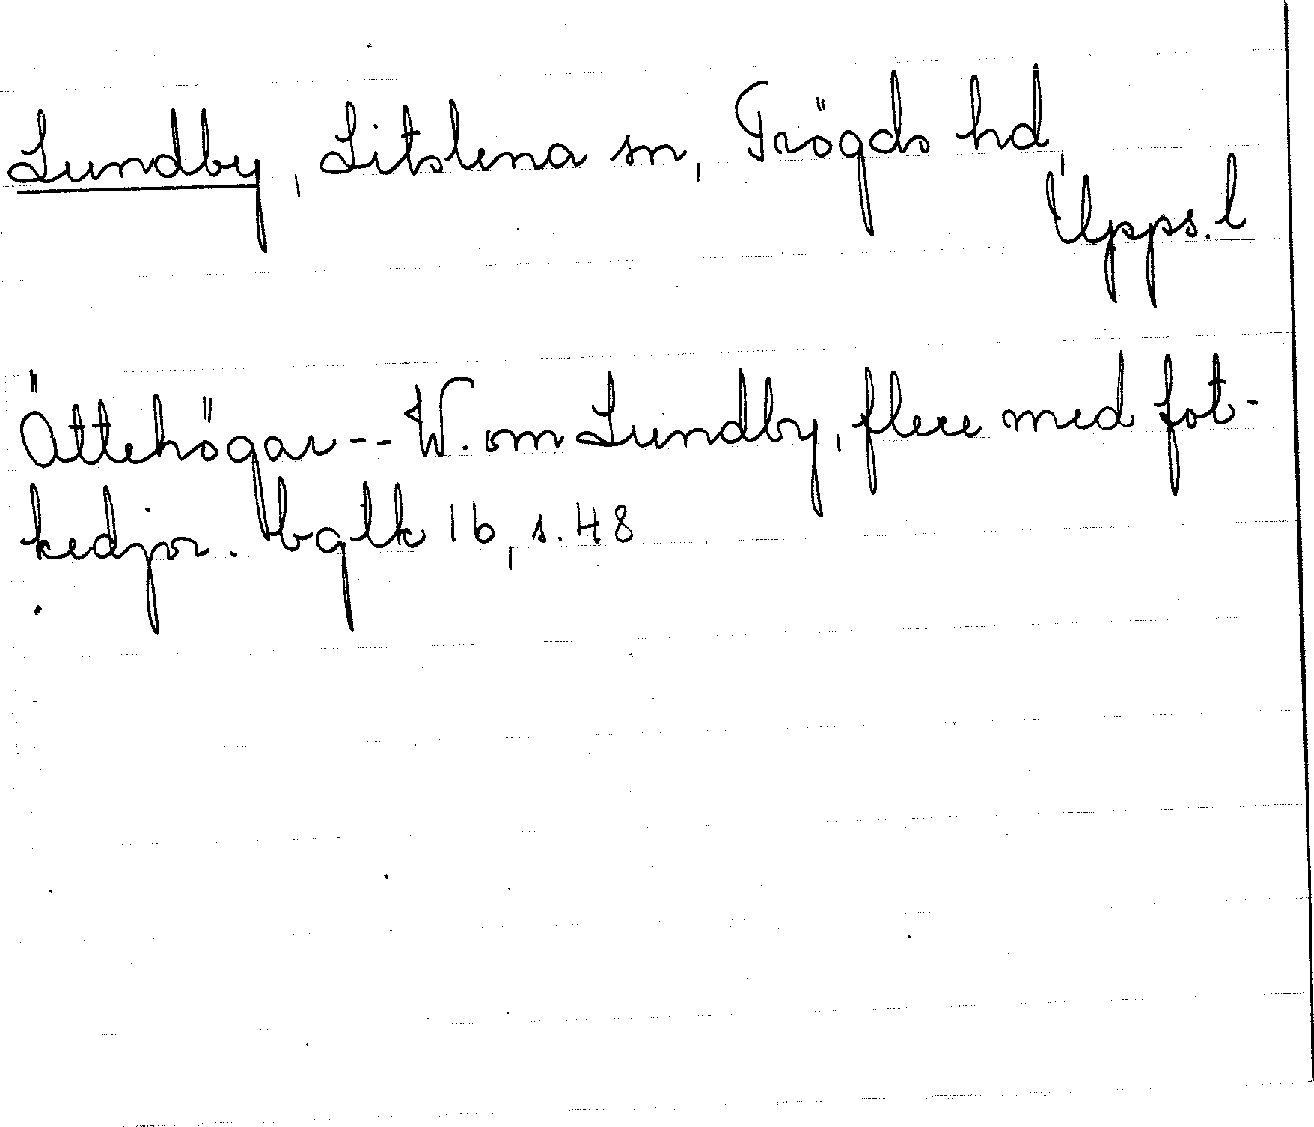 Lundby, Litslena sn, Trögds hd,
Upps. l
Ättehögar -- W. om Lundby, flere med fot-
kedjor. bglk 16, s. 48